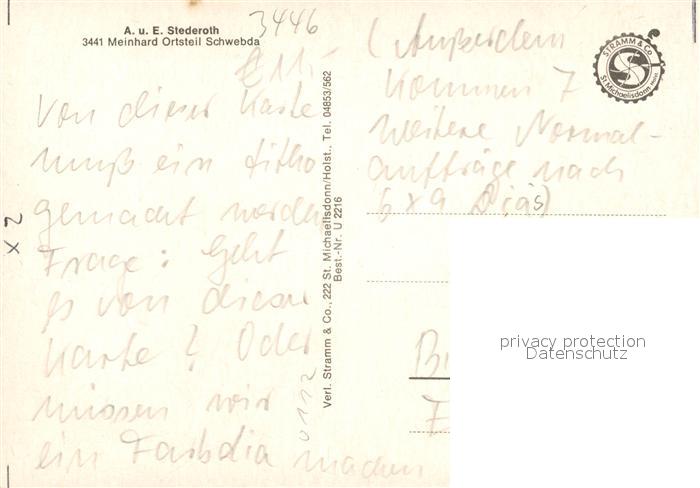 A. u. E. Stederoth
3441 Meinhard Ortsteil Schwebda
3446
11,-
Von dieser Karte
muß ein Litho
gemacht werden
Frage: Geht
es von dieser
Karte? Oder
müssen wir
ein Farbdia machen
2 x
0112
Verl. Stramm & Co., 222 St. Michaelisdonn/Holst., Tel. 04853/562
Best.-Nr. U 2216
(Außerdem
kommen 7
weitere Normal-
aufträge nach
6x9 Dias)
STRAMM & Co.
St. Michaelisdonn
privacy protection
Datenschutz